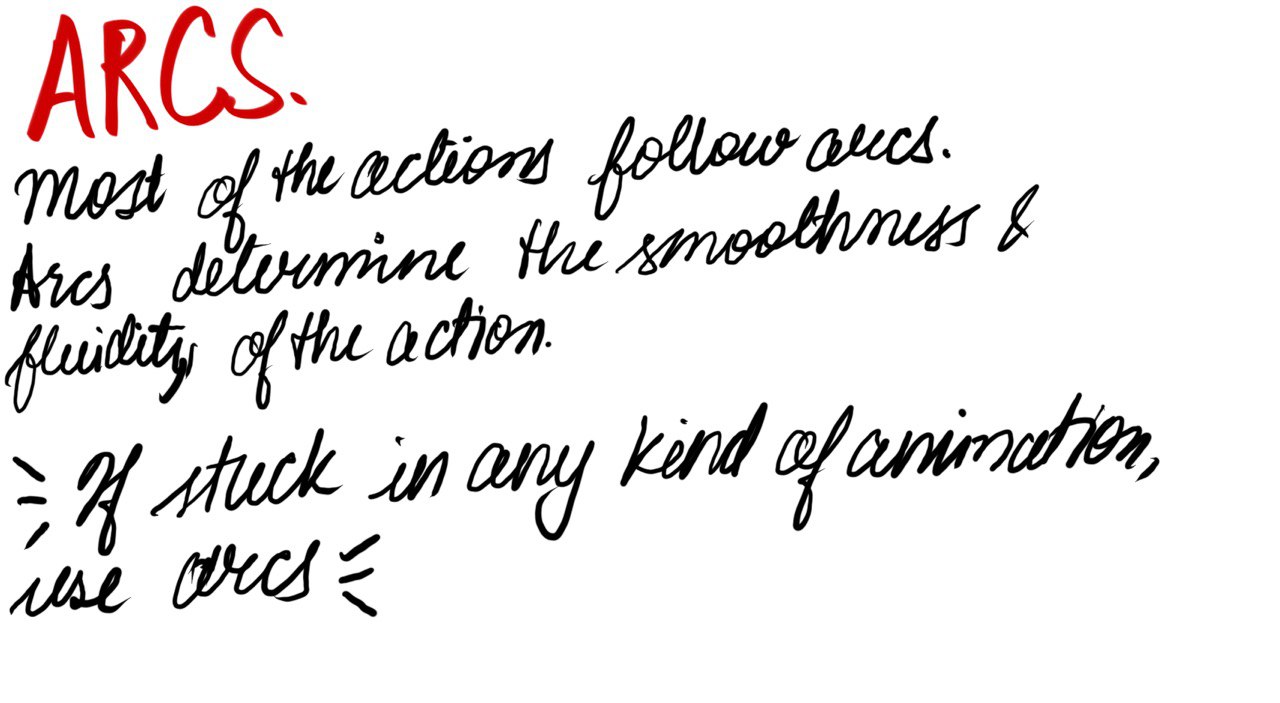 ARCS.
Most of the actions follow arcs.
Arcs determine the smoothness &
fluidity of the action.
If stuck in any kind of animation,
use arcs